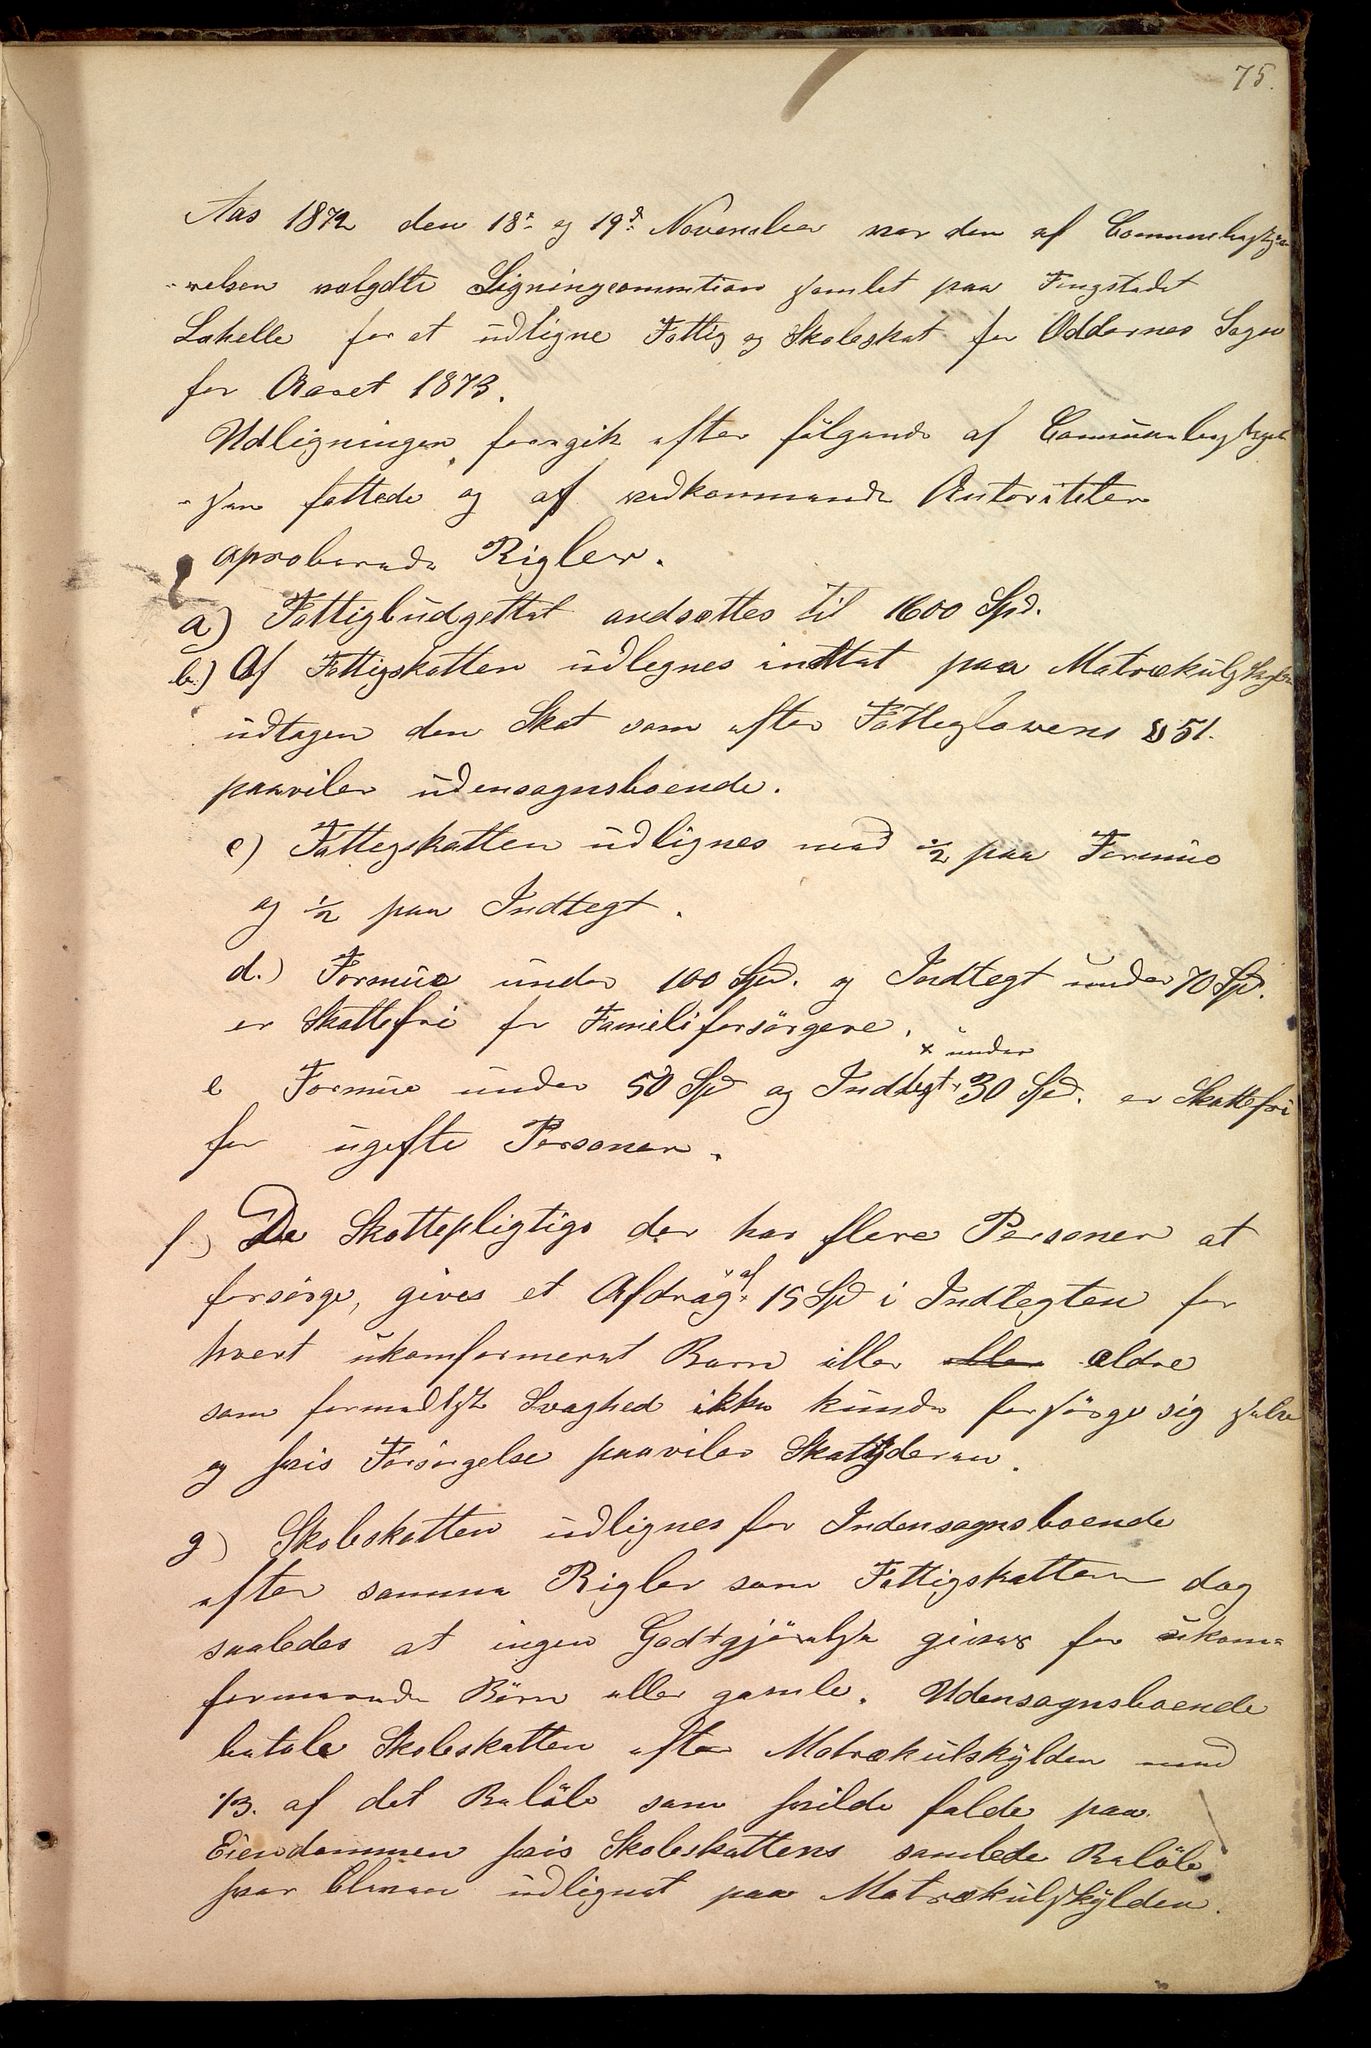 75.
Aas 1872 den 18de og 19d. November var den af Communbestyr-
-relsen valgdte Ligningcommition samlet paa Tingstedet
Lahelle for at udligne Fattig og Skoleskat for Oddernes Sogn
for Aaret 1873.
Udligningen foregik efter fölgende af Communebestyrel-
-sen fattede og af vedkommende Autoriteter
aproberede Rigler.
a) Fattigbudgettet andsættes til 1600 Spd.
b.) Af Fattigskatten udlegnes inttet paa Matrækulskylden
udtagen den Skat som efter Fatteglovens § 51.
paaviler udensognsboende.
c) Fattegskatten udlignes med 1/2 paa Formue
og 1/2 paa Indtegt.
d.) Formue under 100 Spd. og Indtegt under 70 Spd.
er Skattefri for Familiforsörgere.
x under
e Formue under 50 Spd og Indtegt x 30 Spd. er Skattefri
for ugefte Personer.
f.) De Skattepligtige der har flere Personer at
forsörge, gives et Afdrag af 15 Spd i Indtegten for
hvert ukomformeret Barn eller eller ældre
som formedelst Svaghed ikke kunde forsörge sig selve
og hvis Forsörgelse paaviler Skatyderen.
g) Skoleskatten udlignes for Indensognsboende
efter samme Rigler som Fattigskatten dog
saaledes at ingen Godtgjörelse gives for ukom-
formerede Börn eller gamle. Udensognsboende
betale Skoleskatten efter Matrækulskylden med
1/3. af det Belöb som hvilde falde paa
Eiendommen hvis Skoleskattens samlede Belöb
var bleven udlignet paa Matrækulskylden.